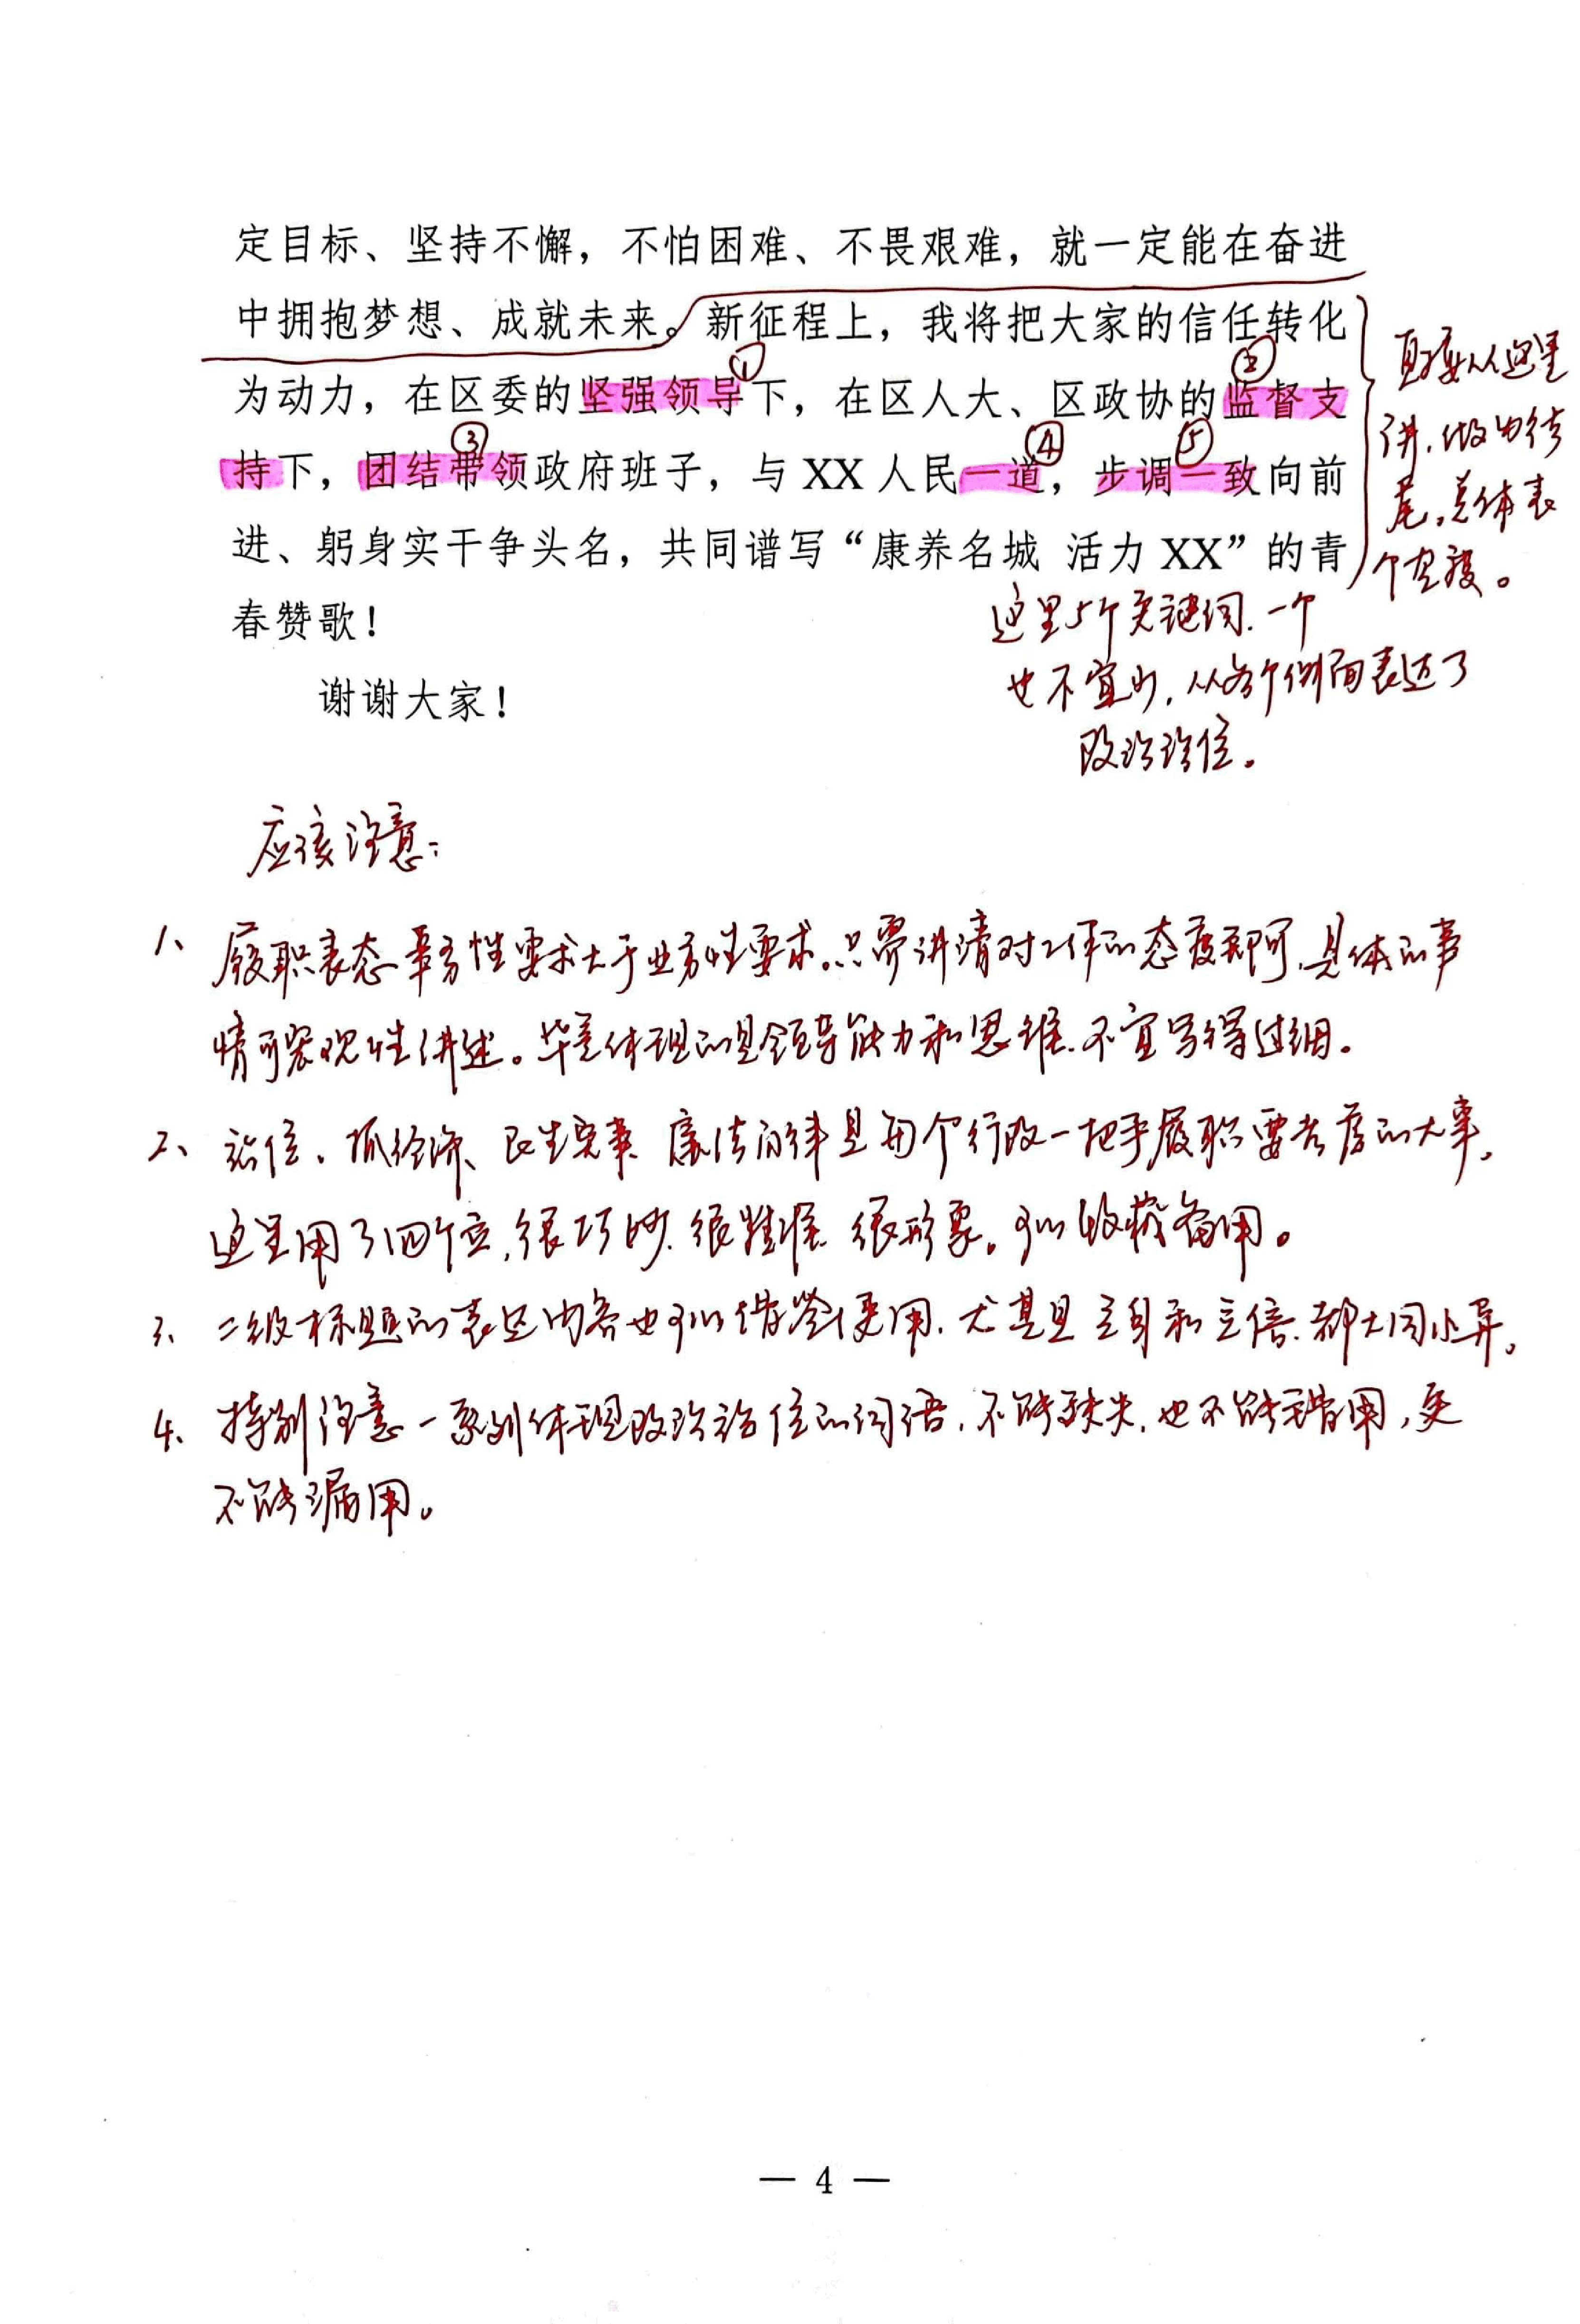 定目标、坚持不懈，不怕困难、不畏艰难，就一定能在奋进
中拥抱梦想、成就未来。新征程上，我将把大家的信任转化
为动力，在区委的坚强领导下，在区人大、区政协的监督支
持下，团结带领政府班子，与 XX 人民一道，步调一致向前
进、躬身实干争头名，共同谱写“康养名城 活力 XX”的青
春赞歌！
谢谢大家！
①
②
③
④
⑤
直接从这里
讲，做为结
尾。总体表
个态度。
这里5个关键词，一个
也不宜少，从各个侧面表达了
政治站位。
应该注意：
1、履职表态事务性要求大于业务性要求。只需讲清对工作的态度即可，具体的事
情可客观性讲述。毕竟体现的是领导能力和思维，不宜写得过细。
2、站位、抓经济、民生实事、廉洁自律是每个行政一把手履职要考虑的大事，
这里用了四个立，很巧妙、很准确、很形象。可以收藏备用。
3、二级标题的表达内容也可以借鉴使用，尤其是立身和立信，都大同小异。
4、特别注意一系列体现政治站位的词语，不能缺失，也不能错用，更
不能漏用。
— 4 —